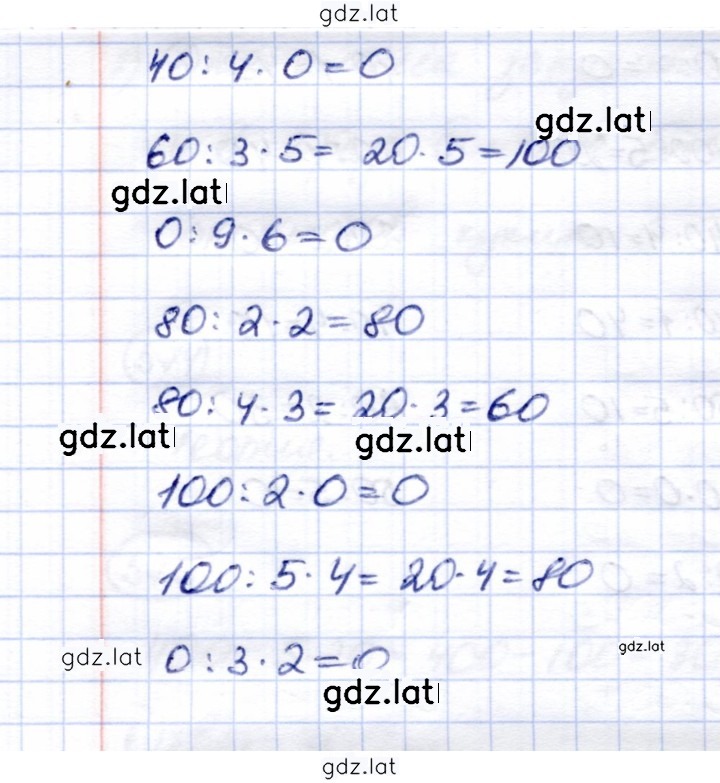 gdz.lat
40 : 4 · 0 = 0
gdz.lat
60 : 3 · 5 = 20 · 5 = 100
gdz.lat
0 : 9 · 6 = 0
80 : 2 · 2 = 80
80 : 4 · 3 = 20 · 3 = 60
gdz.lat gdz.lat
100 : 2 · 0 = 0
100 : 5 · 4 = 20 · 4 = 80
gdz.lat
gdz.lat 0 : 3 · 2 = 0
gdz.lat
gdz.lat